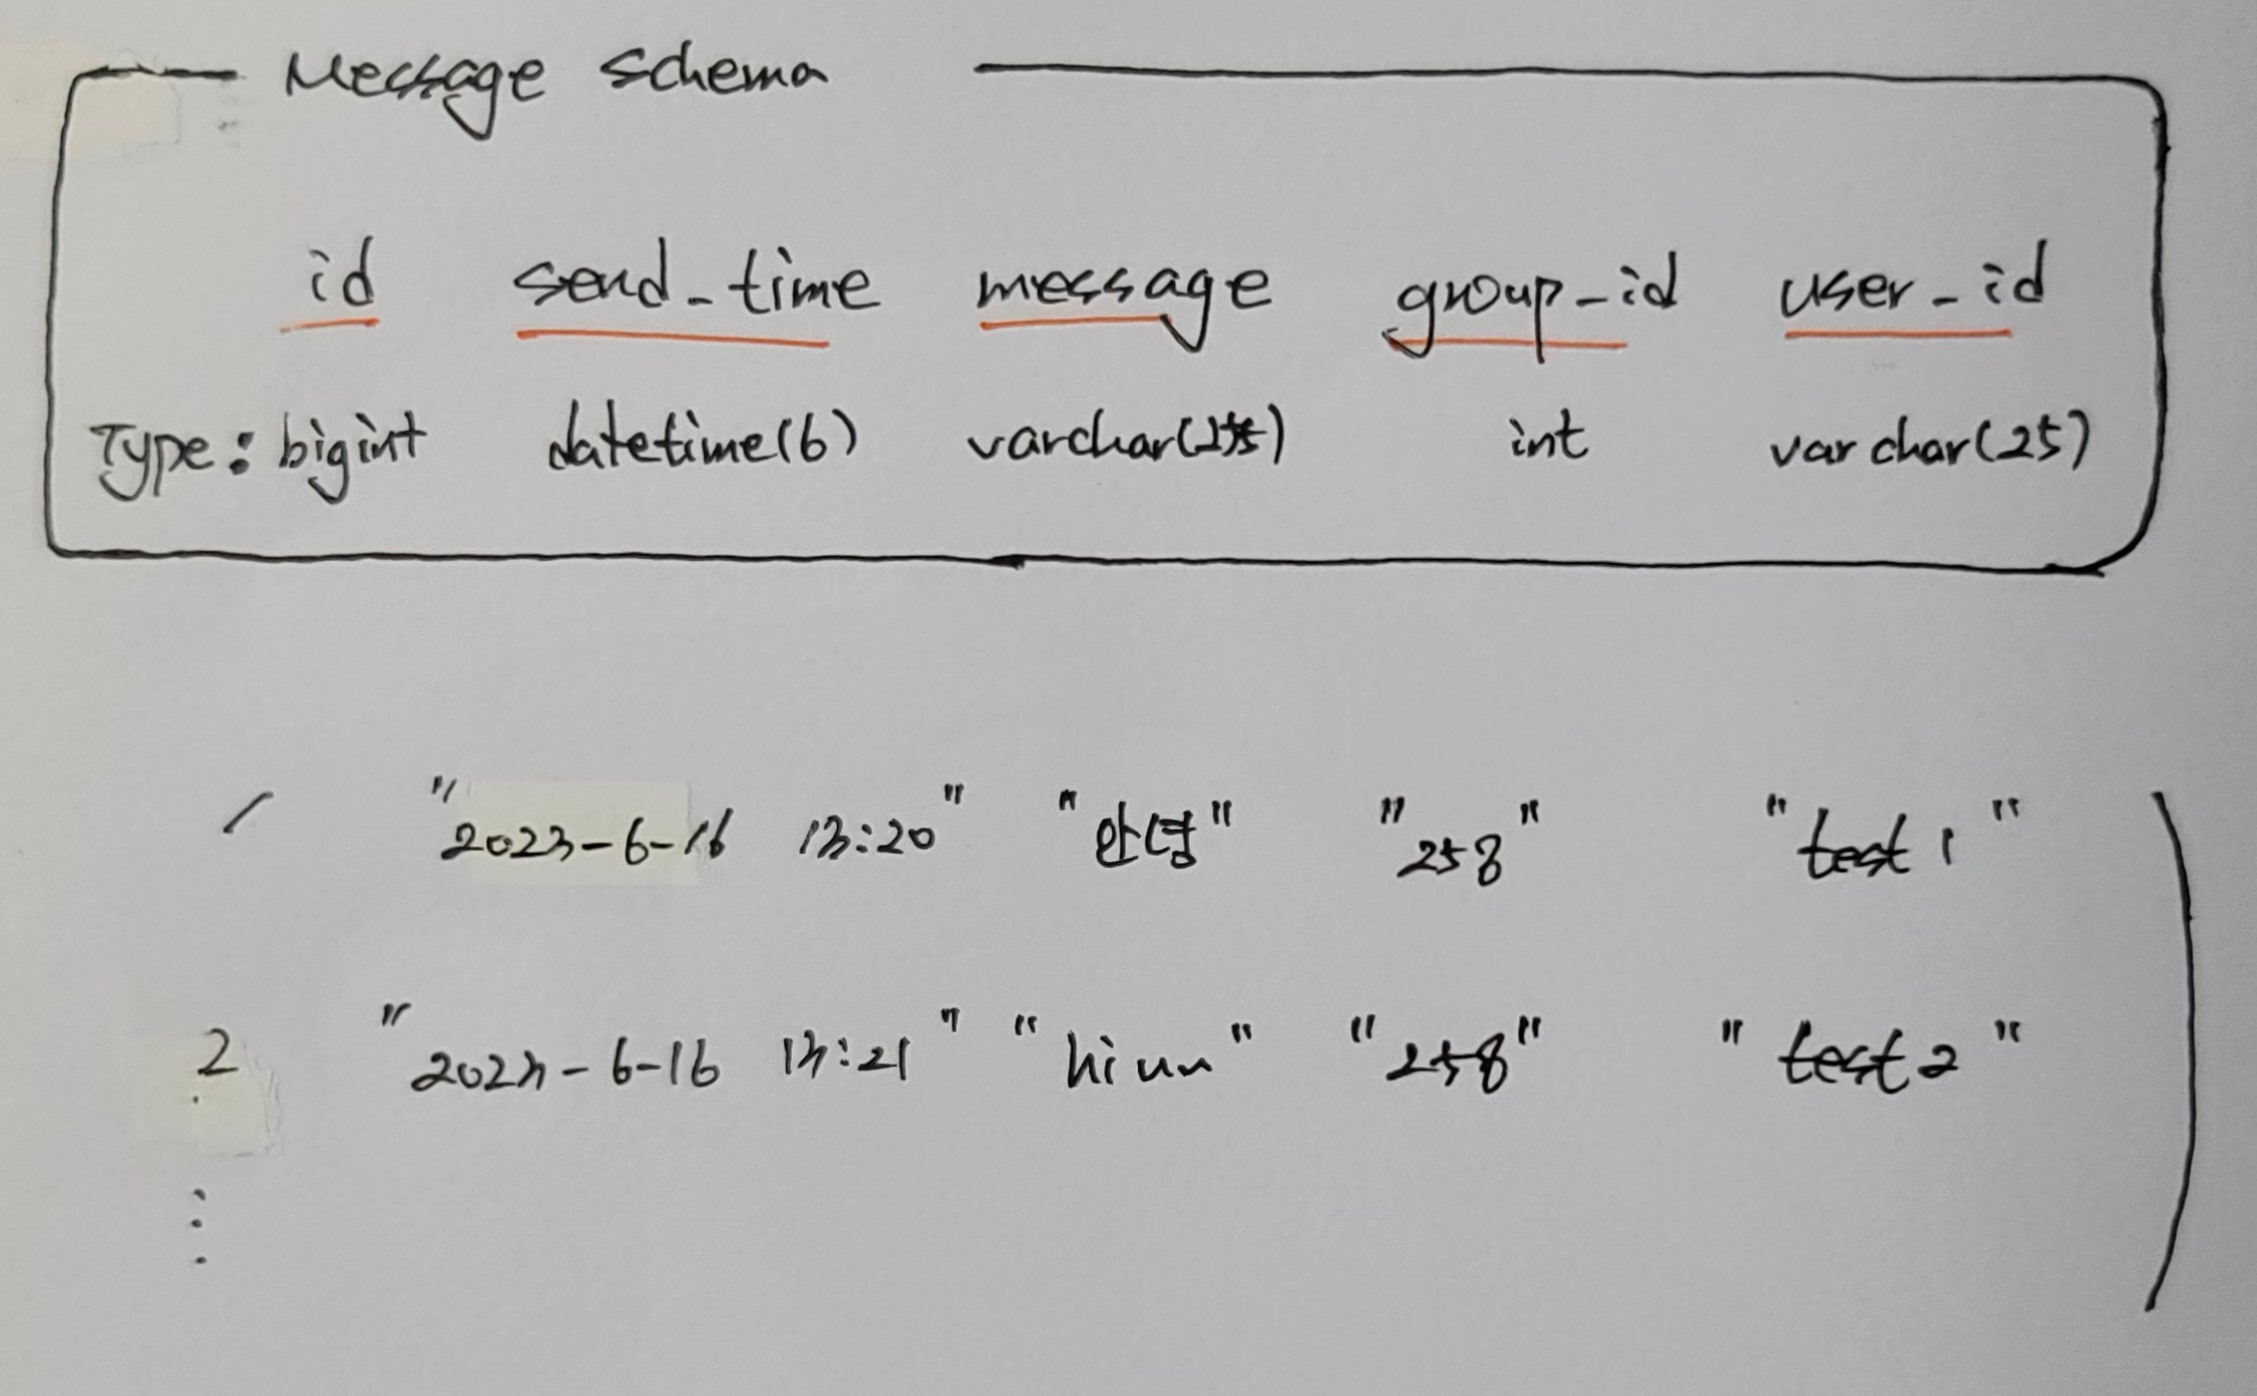 Message schema
id send_time message group_id user_id
Type: bigint datetime(6) varchar(255) int varchar(25)
1 "2023-6-16 13:20" "안녕" "258" "test1"
2 "2023-6-16 13:21" "hi" "258" "test2"